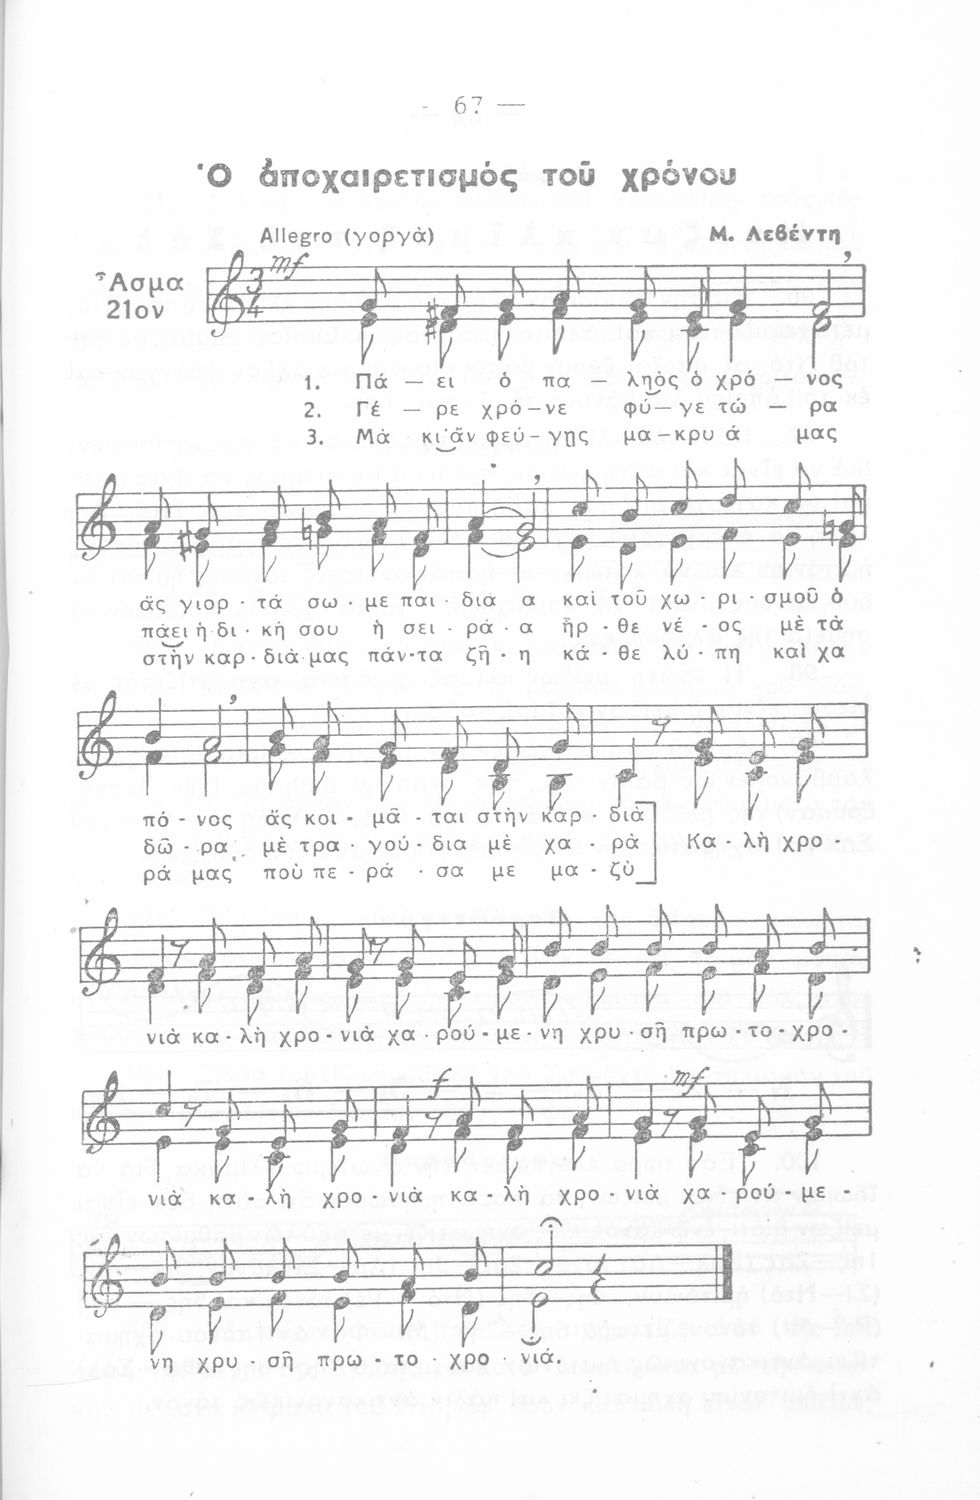 67 —
Ὁ ἀποχαιρετισμός τοῦ χρόνου
Allegro (γοργὰ)
Μ. Λεβέντη
Ἆσμα
21ον
mf
3
4
1. Πά — ει ὁ πα — ληὸς ὁ χρό — νος
2. Γέ — ρε χρό–νε φύ— γε τώ — ρα
3. Μὰ κι ἂν φεύ–γῃς μα–κρυά μας
ἄς γιορ · τά σω · με παι · διά α καὶ τοῦ χω · ρι · σμοῦ ὁ
πάει ἡ δι · κή σου ἡ σει · ρά · α ἦρ · θε νέ · ος μὲ τὰ
στὴν καρ · διὰ μας πάν·τα ζῆ · η κά · θε λύ · πη καὶ χα
πό · νος ἄς κοι · μᾶ · ται στὴν καρ · διὰ
δῶ · ρα μὲ τρα · γού · δια μὲ χα ρὰ Κα · λὴ χρο ·
ρά μας ποὺ πε · ρά · σα με μα · ζὺ
νιὰ κα · λὴ χρο · νιὰ χα · ρού · με · νη χρυ · σῆ πρω · το · χρο ·
f mf
νιὰ κα · λὴ χρο · νιὰ κα · λὴ χρο · νιὰ χα ρού · με ·
νη χρυ · σῆ πρω · το · χρο · νιά.